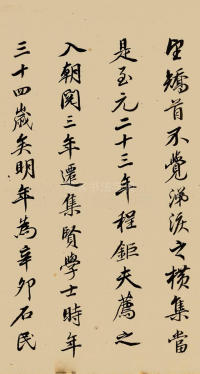 望矯首不覺涕淚之橫集當
是至元二十三年程鉅夫薦之
入朝閱三年遷集賢學士時年
三十四歲矣明年為辛卯石民